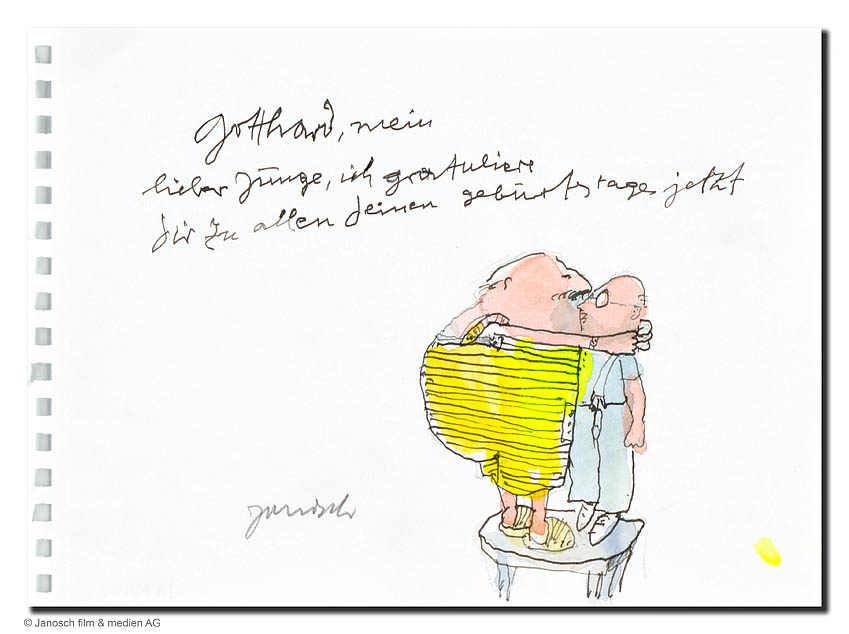 Gotthard, mein
lieber Junge, ich gratuliere
dir zu allen deinen geburtstages jetzt
Janosch
© Janosch film & medien AG